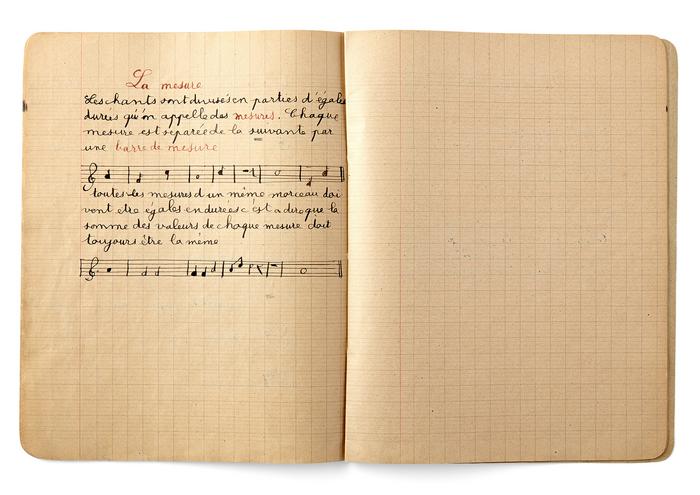 La mesure
Les chants sont divisés en parties d'égale
durées qu'on appelle des mesures. Chaque
mesure est séparée de la suivante par
une barre de mesure
toutes les mesures d'un même morceau doi
vent etre égales en durées c'est a dire que la
somme des valeurs de chaque mesure doit
toujours être la même